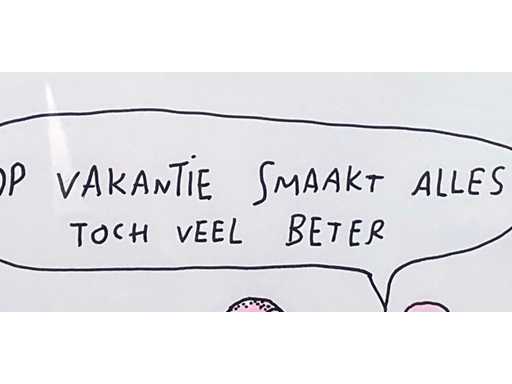 OP VAKANTIE SMAAKT ALLES
TOCH VEEL BETER